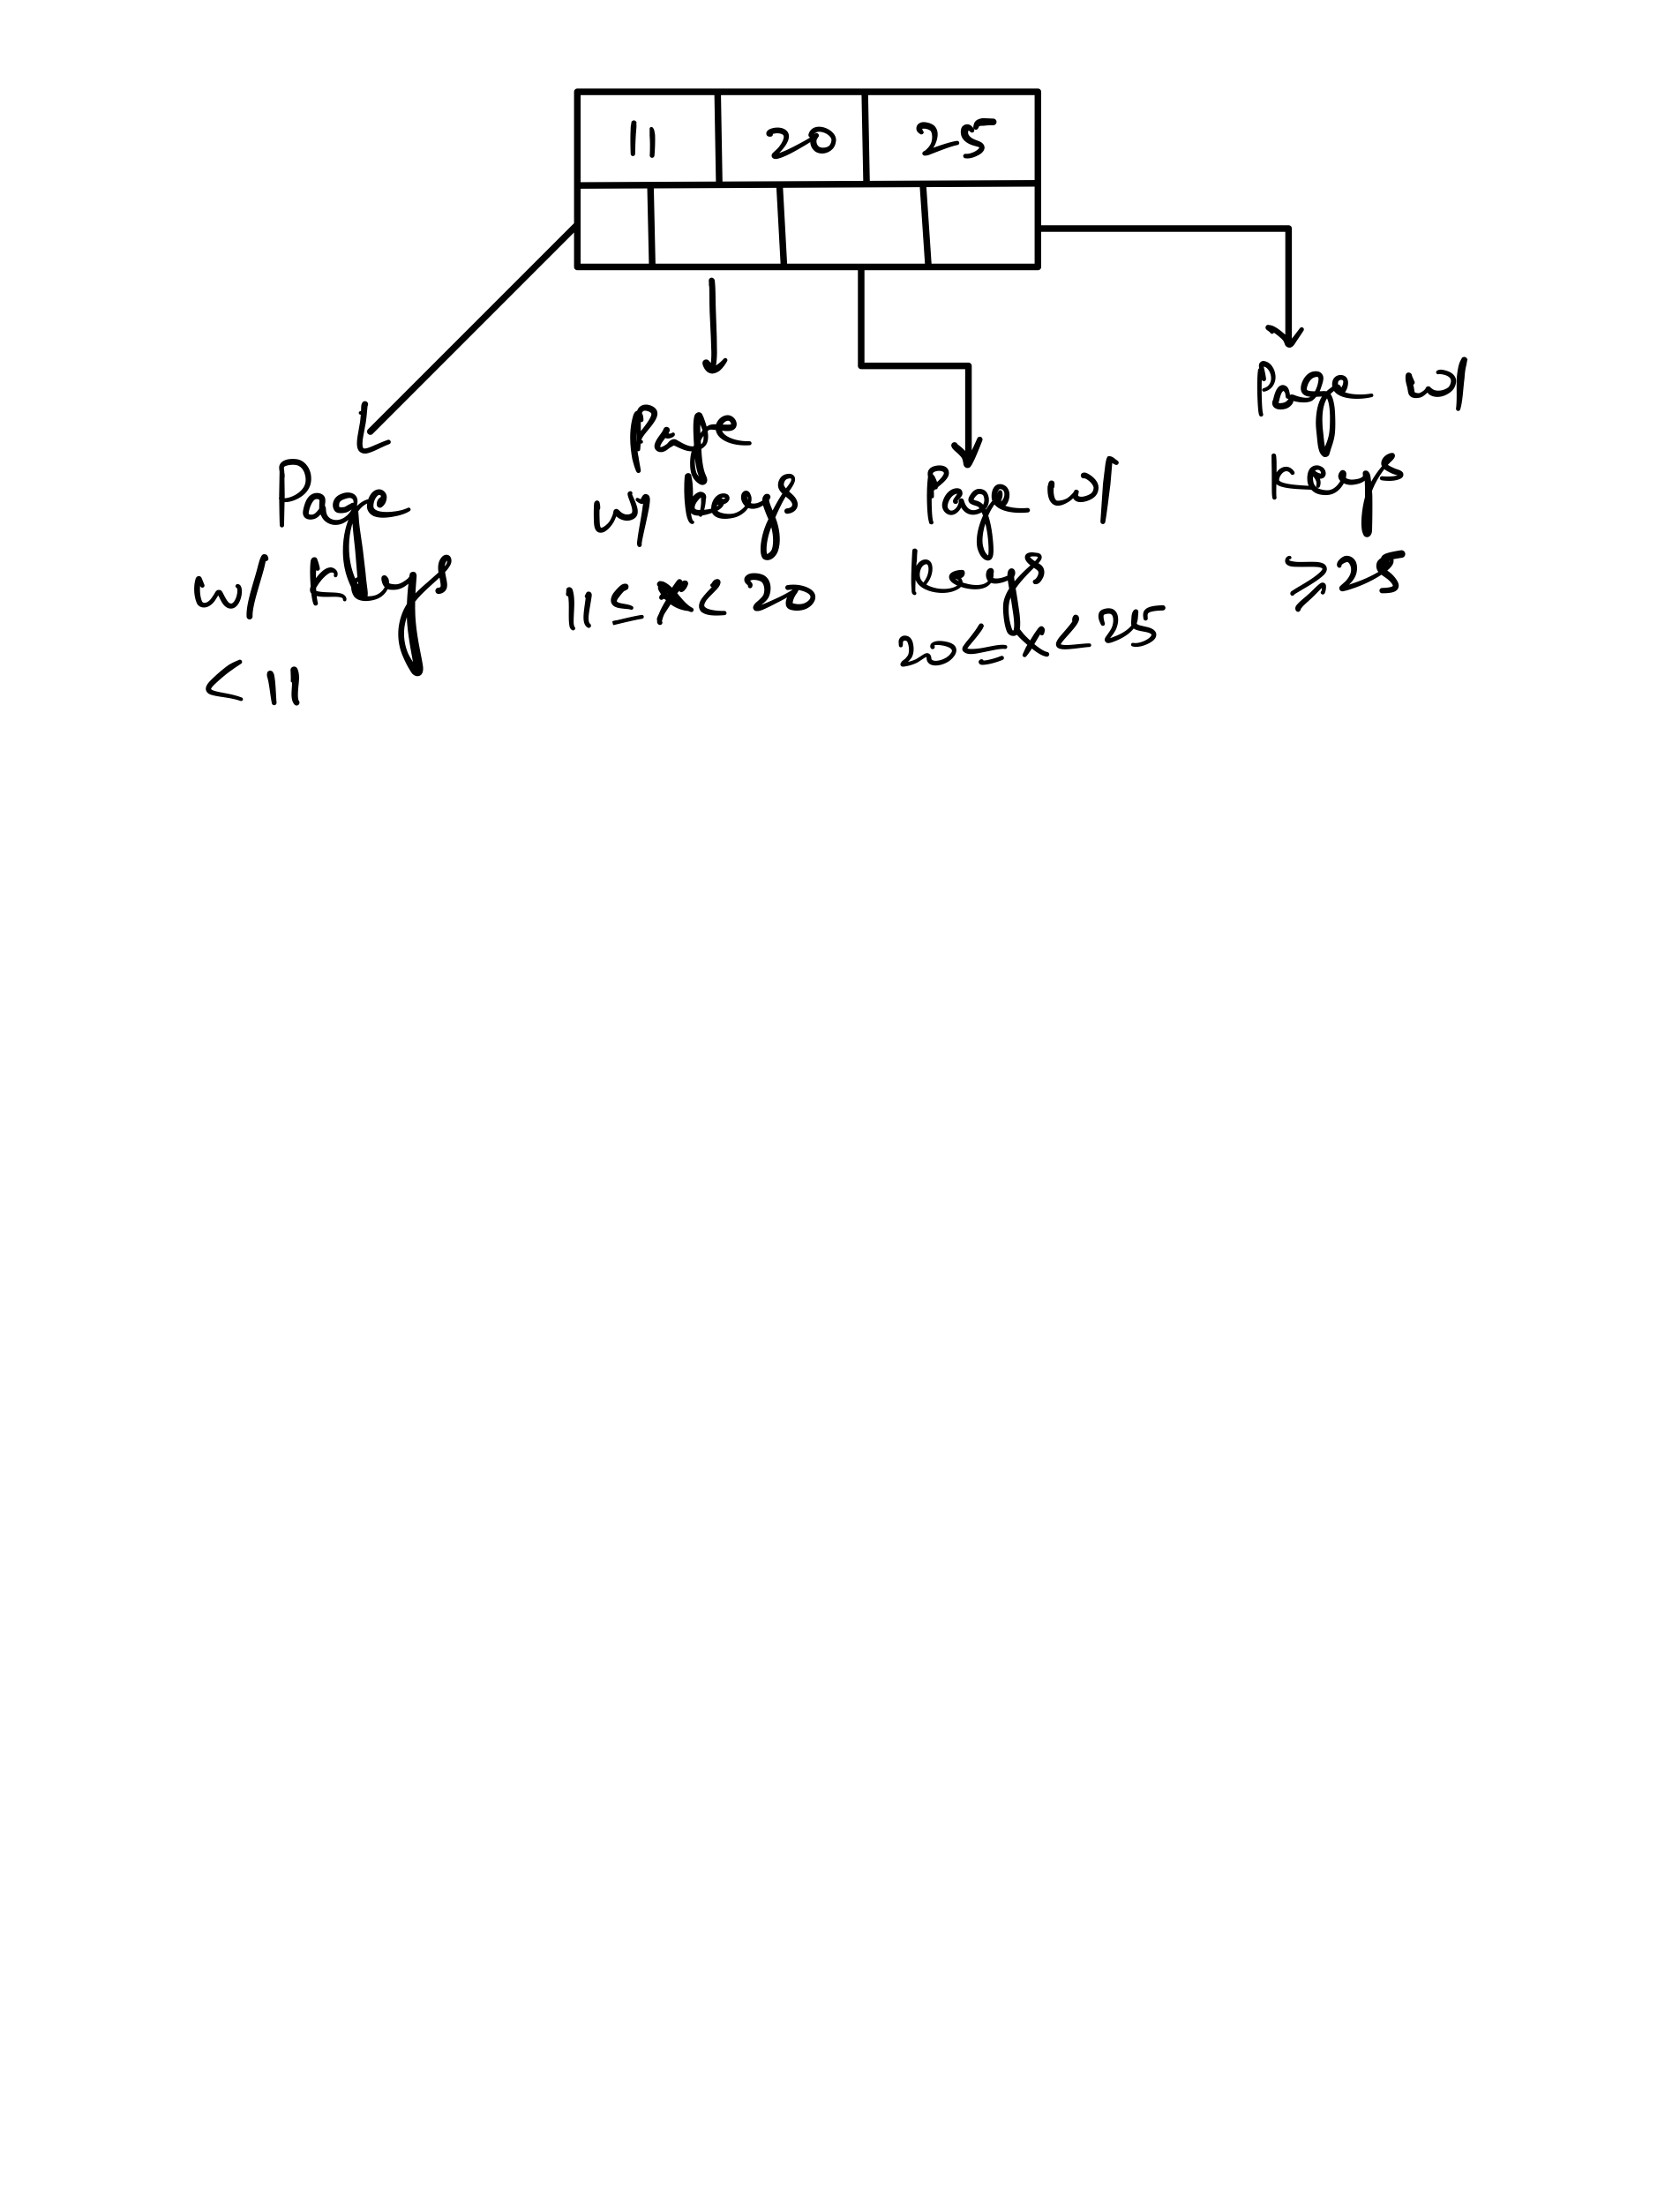 11 20 25
Page
w/ keys
< 11
Page
w/ keys
11 ≤ x < 20
Page w/
keys
20 ≤ x < 25
Page w/
keys
≥ 25